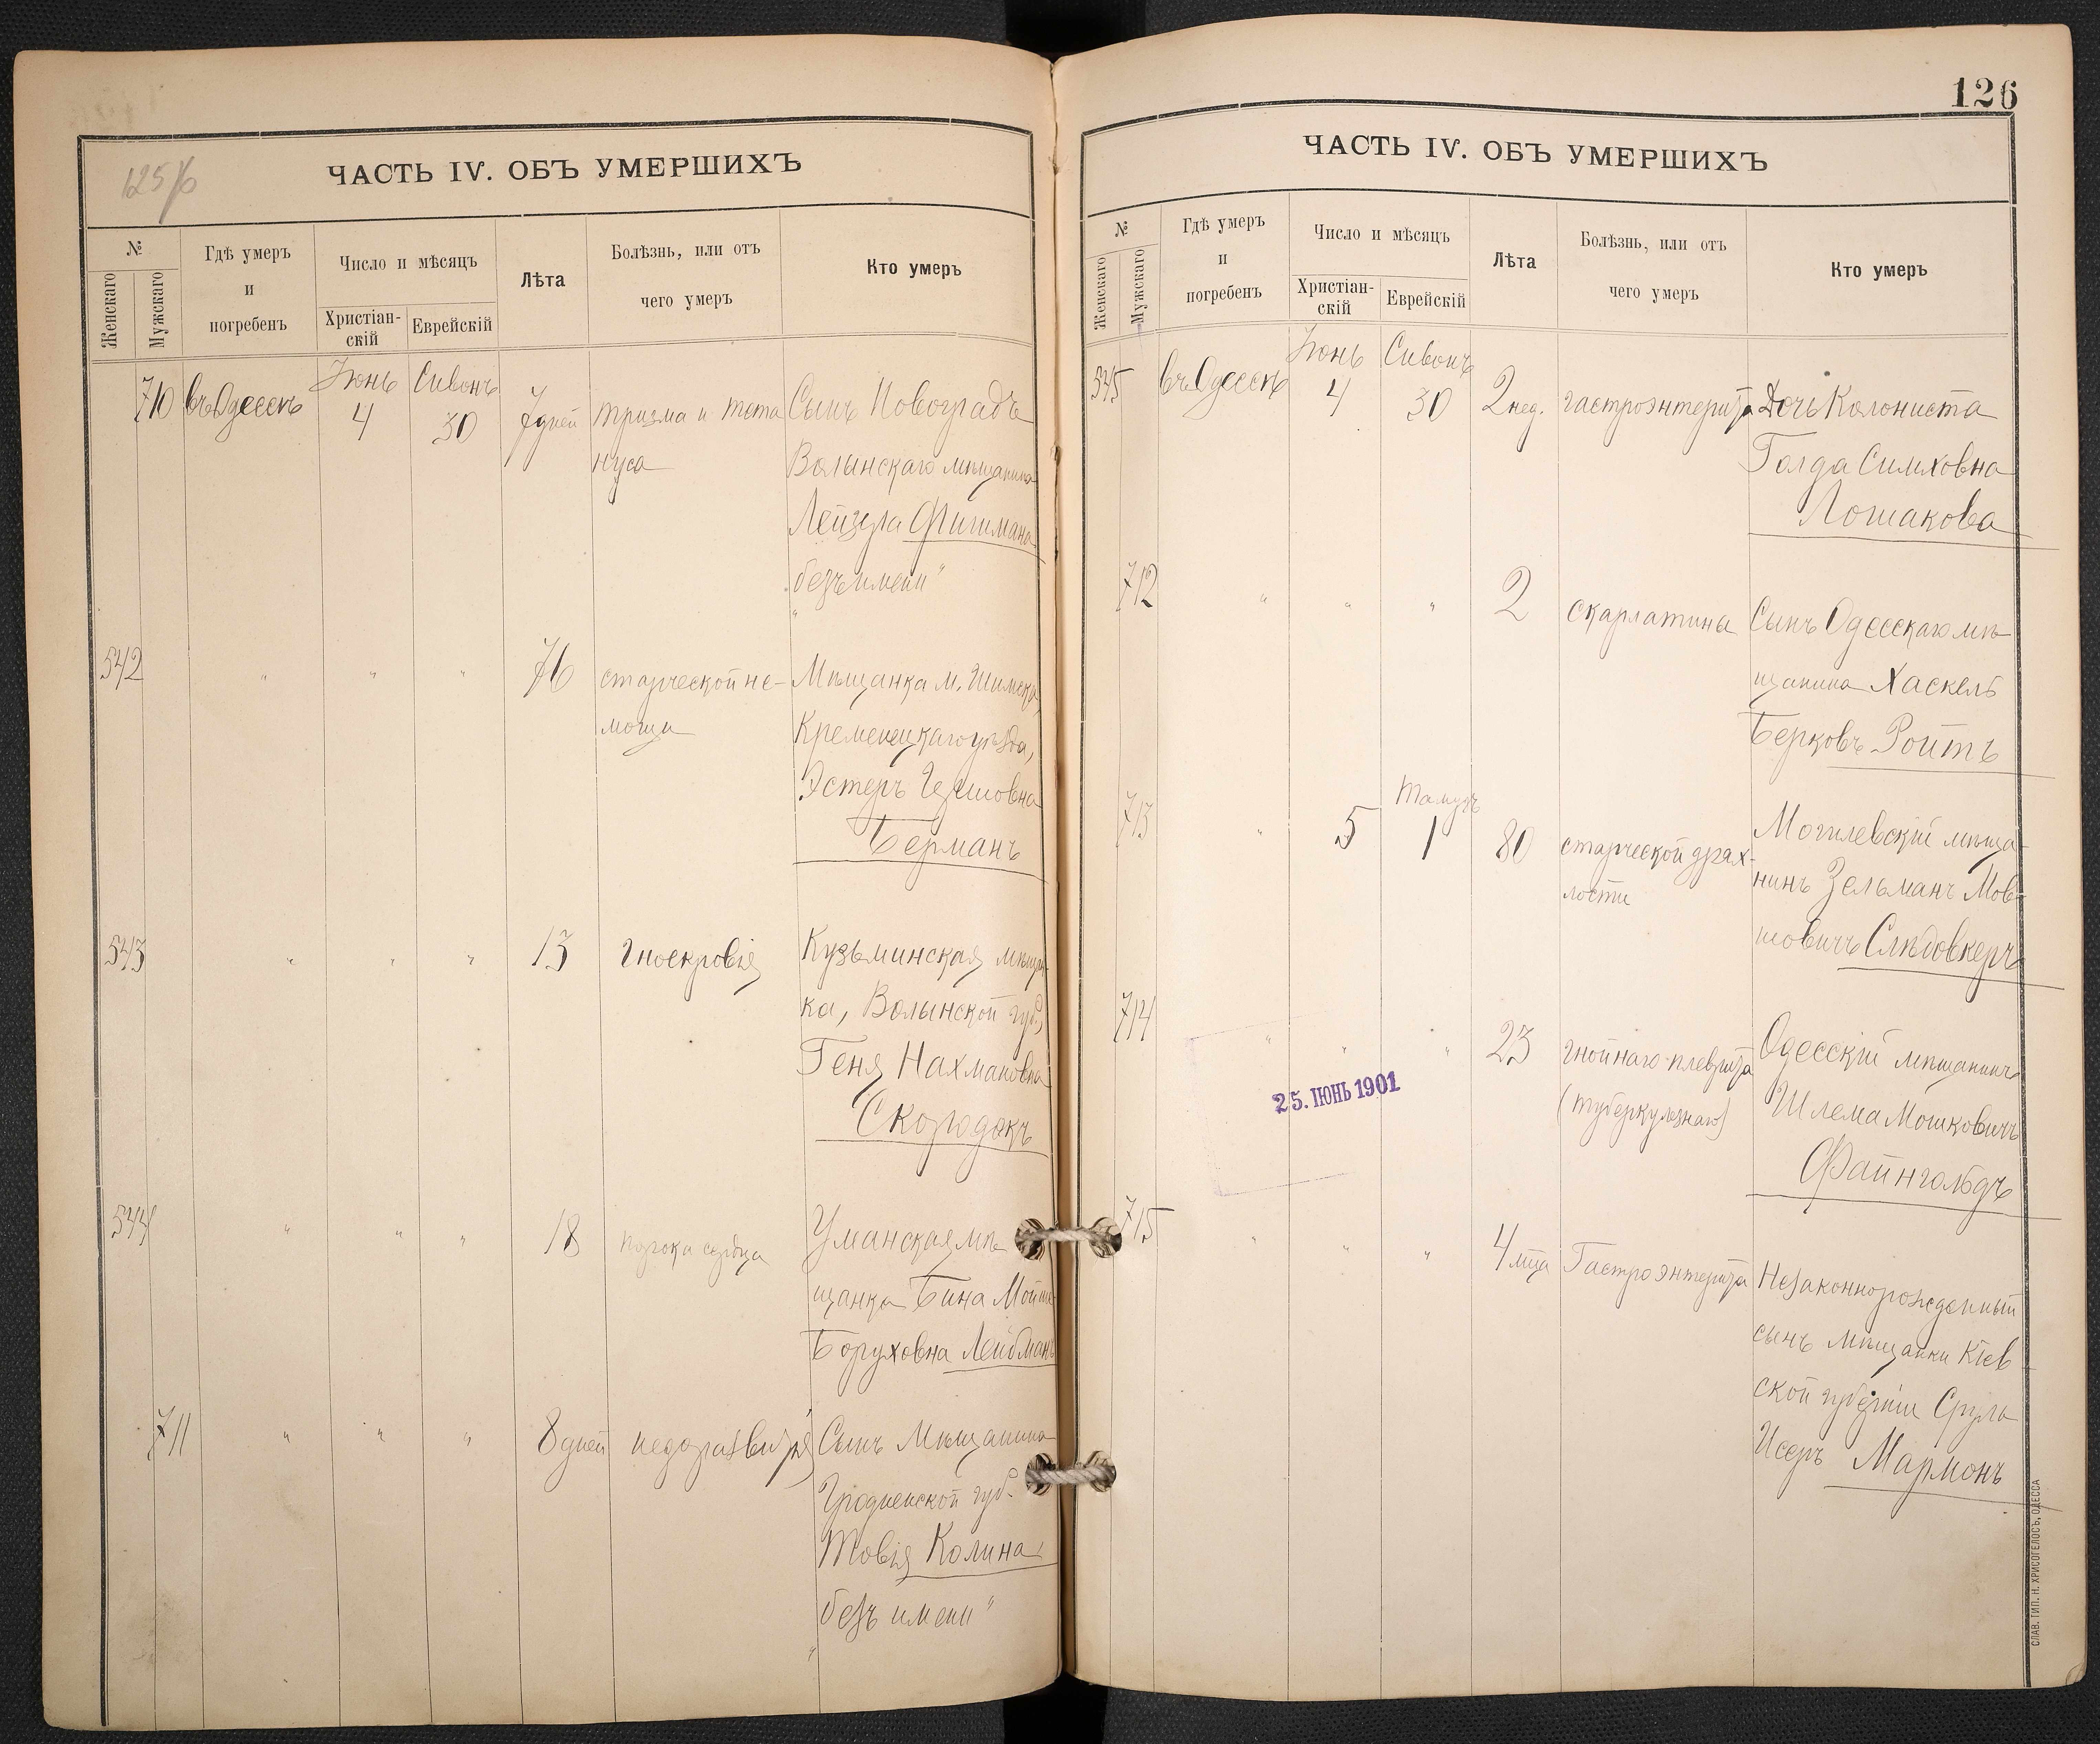 125/б
ЧАСТЬ IV. ОБЪ УМЕРШИХЪ
№
Женскаго
Мужскаго
Гдѣ умеръ
и
погребенъ
Число и мѣсяцъ
Христіан-
скій
Еврейскій
Лѣта
Болѣзнь, или отъ
чего умеръ
Кто умеръ
710 въ Одессѣ Іюнь 4 Сивонъ 30 7 дней тризма и тета
нуса
Сынъ Новоградъ
Волынскаго мѣщанина
Лейзера Фишмана
"безъ имени"
542 " " " 76 старческой не-
мощи
Мѣщанка м. Шумска,
Кременецкаго уѣзда,
Эстеръ Гершовна
Берманъ
543 " " " 13 гноекровія
Кузьминская мѣщан-
ка, Волынской губ.,
Геня Нахмановна
Скородокъ
544 " " " 18 порока сердца
Уманская мѣ
щанка Бина Мойше-
Боруховна Лейбманъ
711 " " " 8 дней недоразвитія
Сынъ Мѣщанина
Гродненской губ.
Товія Колина
"безъ имени"
126
ЧАСТЬ IV. ОБЪ УМЕРШИХЪ
№
Женскаго
Мужскаго
Гдѣ умеръ
и
погребенъ
Число и мѣсяцъ
Христіан-
скій
Еврейскій
Лѣта
Болѣзнь, или отъ
чего умеръ
Кто умеръ
545 въ Одессѣ Іюнь 4 Сивонъ 30 2 нед. гастроэнтерита
Дочь Колониста
Голда Симховна
Лошакова
712 " " " 2 скарлатины
Сынъ Одесскаго мѣ
щанина Хаскель
Берковъ Ройтъ
713 " 5 Тамузъ 1 80 старческой дрях-
лости
Могилевскій мѣща-
нинъ Зельманъ Мов-
шовичъ Слѣдовкеръ
714 " " " 23 гнойнаго плеврита
(туберкулезнаго)
Одесскій мѣщанинъ
Шлема Мошковичъ
Файнгольдъ
25. ІЮНЬ 1901
715 " " " 4 мца Гастроэнтерита
Незаконнорожденный
сынъ мѣщанки Кіев
ской губерніи Сруль
Исеръ Мармонъ
СЛАВ. ТИП. Н. ХРИСОГЕЛОСЪ, ОДЕССА